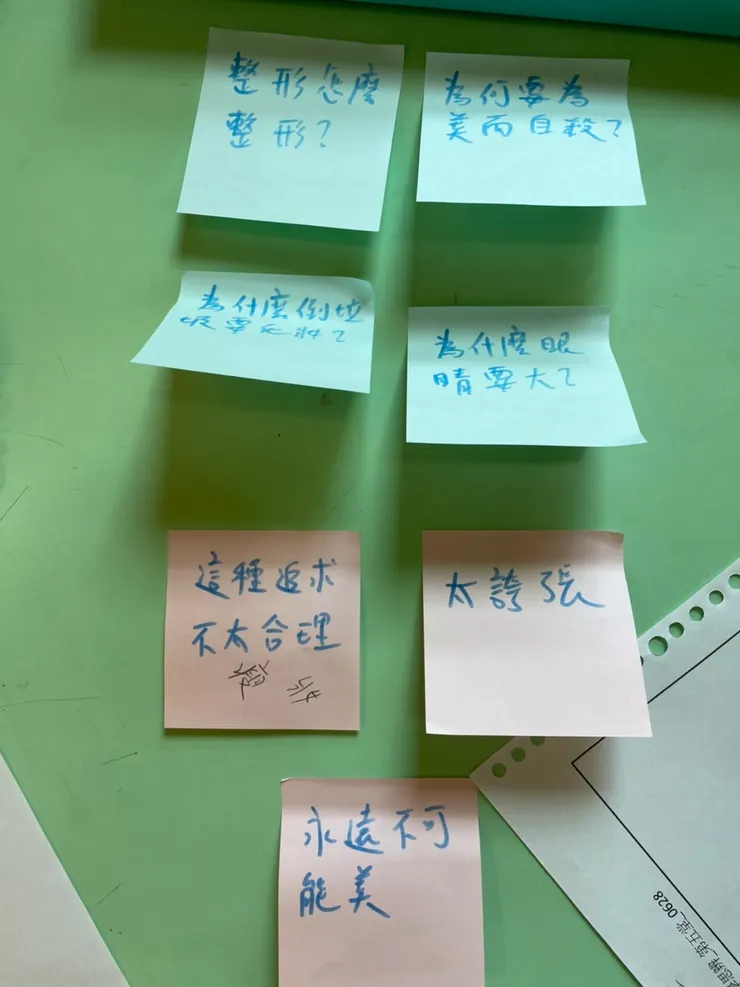 整形怎麼
整形？
為何要為
美而自殺？
為什麼倒垃
圾要化妝？
為什麼眼
睛要大？
這種追求
不太合理
太誇張
永遠不可
能美
思辨_第五堂_0628